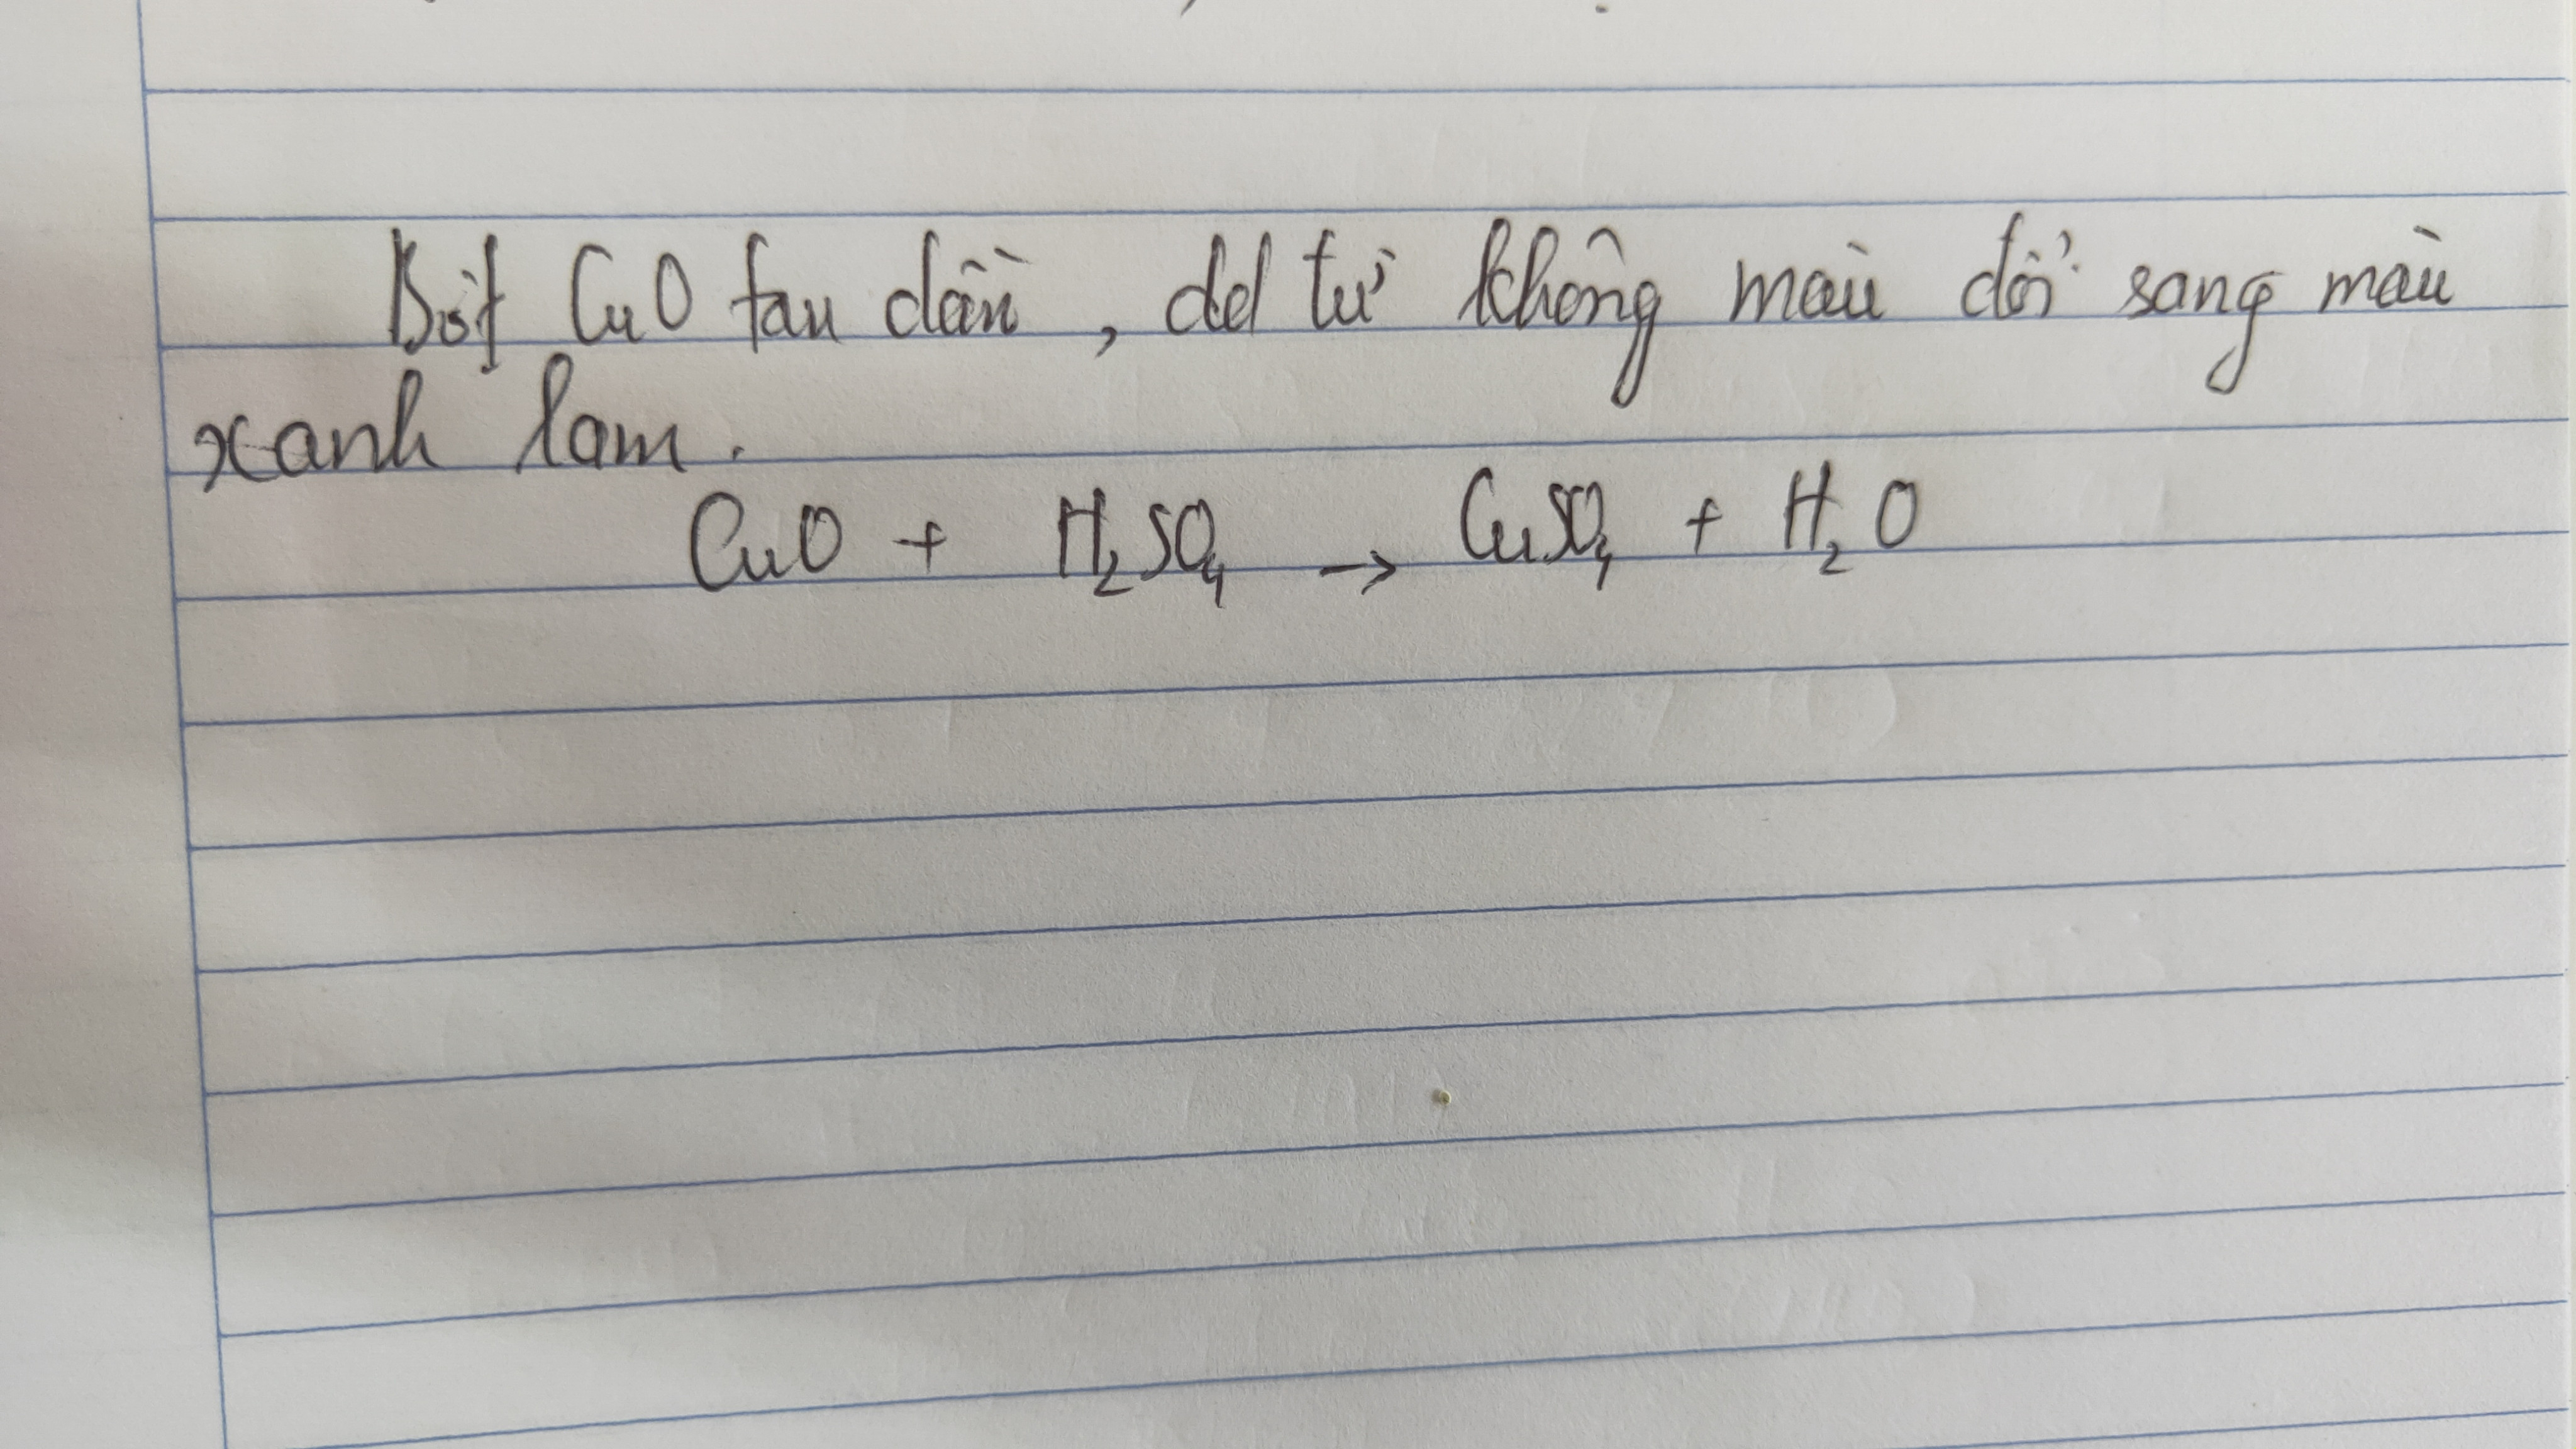 Bột CuO tan dần, dd từ không màu đổi sang màu
xanh lam.
CuO + H₂SO₄ → CuSO₄ + H₂O